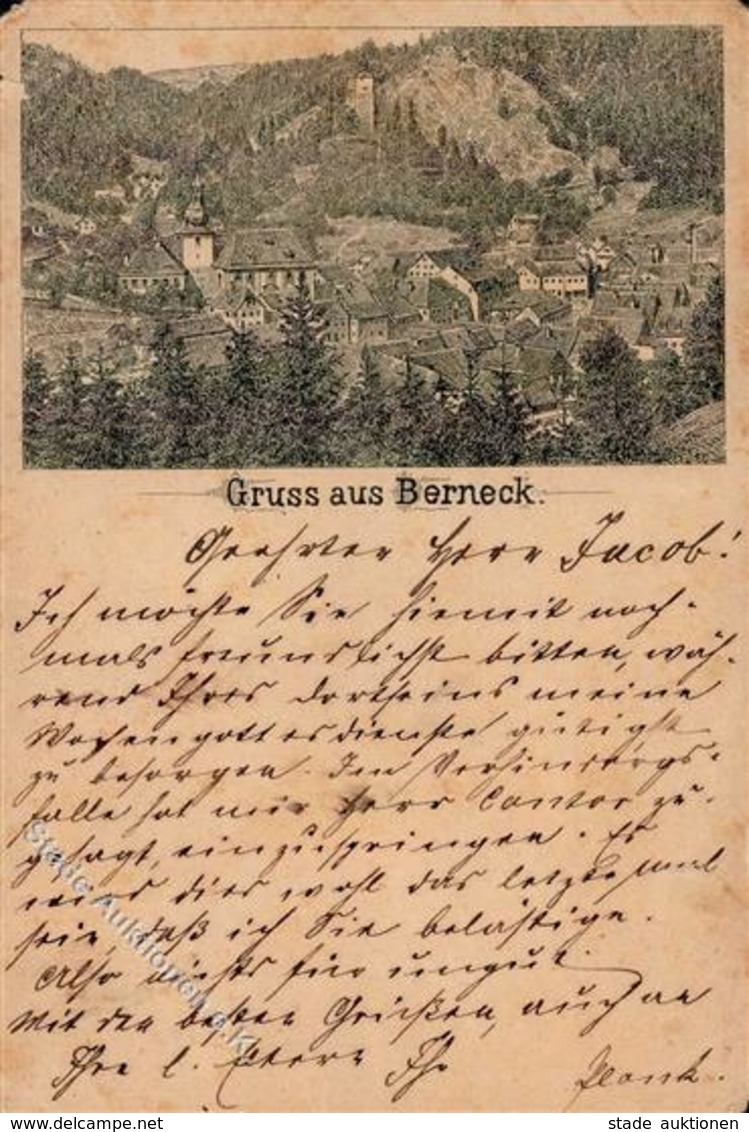 Gruss aus Berneck.
Geehrter Herr Jacob!
Ich möchte Sie hiemit noch-
mals freundlichst bitten, wäh-
rend Ihres dortseins meine
Wochengottesdienste gütigst
zu besorgen. Im Verhinderungs-
falle hat mir Herr Cantor zu-
gesagt, einzuspringen. Es
wird dies wohl das letzte mal
sein, daß ich Sie belästige.
Also nichts für ungut.
Mit den besten Grüßen, auch an
Ihre l. Eltern Ihr
Plank.
Stade Auktionen
stade auktionen